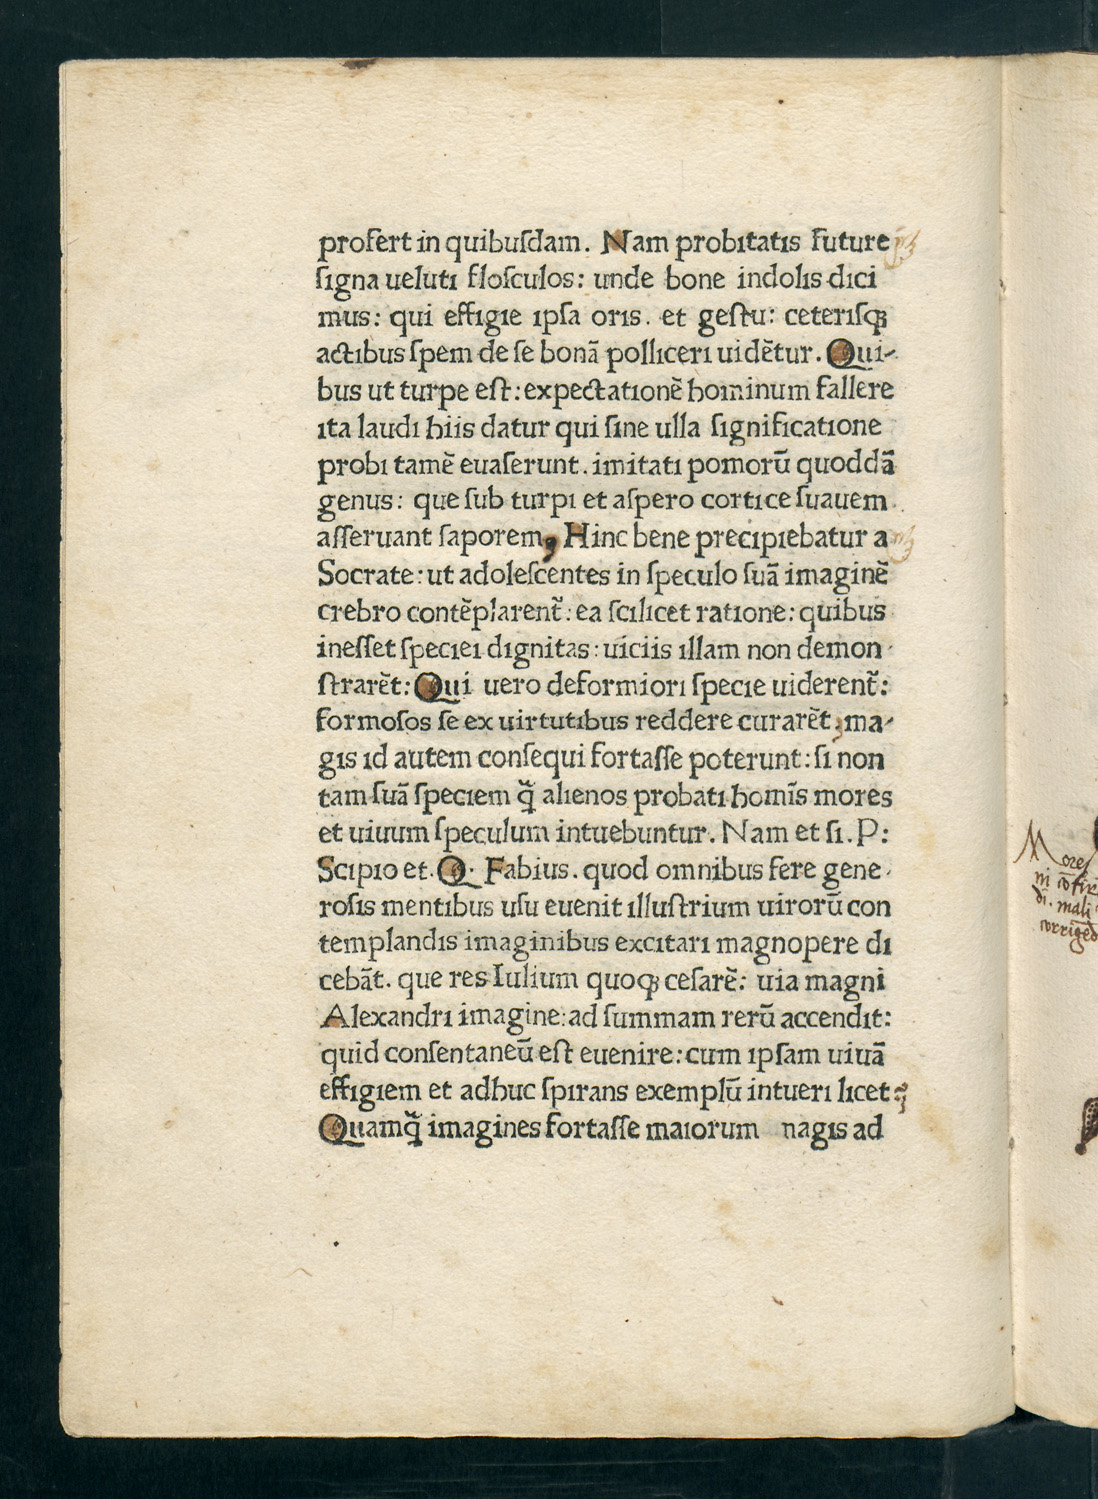 profert in quibuſdam. Nam probitatis future
ſigna ueluti floſculos: unde bone indolis dici
mus: qui effigie ipſa oris. et geſtu: ceteriſqꝫ
actibus ſpem de ſe bonā polliceri uidētur. Qui-
bus ut turpe eſt: expectationē hominum fallere
ita laudi hiis datur qui ſine ulla ſignificatione
probi tamē euaſerunt. imitati pomorū quoddā
genus: que ſub turpi et aſpero cortice ſuauem
aſſeruant ſaporem, Hinc bene precipiebatur a
Socrate: ut adoleſcentes in ſpeculo ſuā imaginē
crebro contēplarent̄: ea ſcilicet ratione: quibus
ineſſet ſpeciei dignitas: uiciis illam non demon-
ſtrarēt: Qui uero deformiori ſpecie uiderent̄:
formoſos ſe ex uirtutibus reddere curarēt, ma-
gis id autem conſequi fortaſſe poterunt: ſi non
tam ſuā ſpeciem q̄ alienos probati homīs mores
et uiuum ſpeculum intuebuntur. Nam et ſi. P:
Scipio et. Q. Fabius. quod omnibus fere gene-
roſis mentibus uſu euenit illuſtrium uirorū con
templandis imaginibus excitari magnopere di
cebāt. que res Iulium quoqꝫ ceſarē: uia magni
Alexandri imagine: ad ſummam rerū accendit:
quid conſentaneū eſt euenire: cum ipſam uiuā
effigiem et adhuc ſpirans exemplū intueri licet:
Quamq̄ imagines fortaſſe maiorum nagis ad
Mores
di. mali